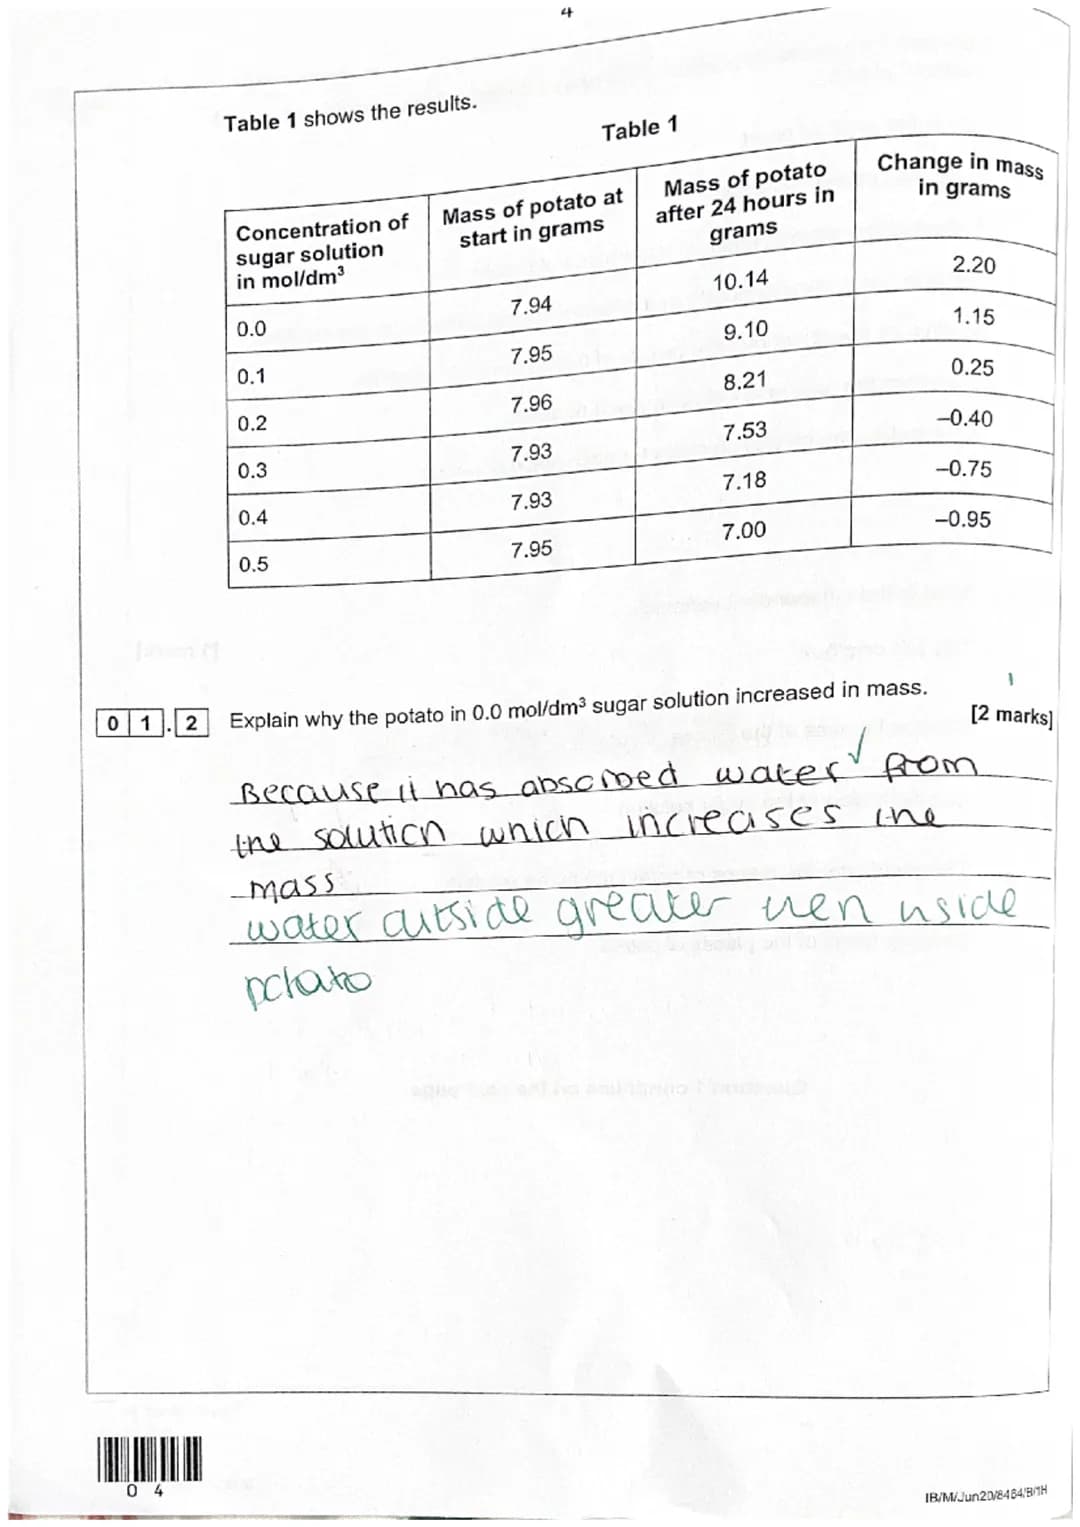 4
Table 1 shows the results.
Table 1
Concentration of sugar solution in mol/dm³ | Mass of potato at start in grams | Mass of potato after 24 hours in grams | Change in mass in grams
0.0 | 7.94 | 10.14 | 2.20
0.1 | 7.95 | 9.10 | 1.15
0.2 | 7.96 | 8.21 | 0.25
0.3 | 7.93 | 7.53 | –0.40
0.4 | 7.93 | 7.18 | –0.75
0.5 | 7.95 | 7.00 | –0.95
1
0 1 . 2 Explain why the potato in 0.0 mol/dm³ sugar solution increased in mass.
[2 marks]
Because it has absorbed water ✓ from
the solution which increases the
mass
water outside greater then inside
potato
0 4
IB/M/Jun20/8464/B/1H